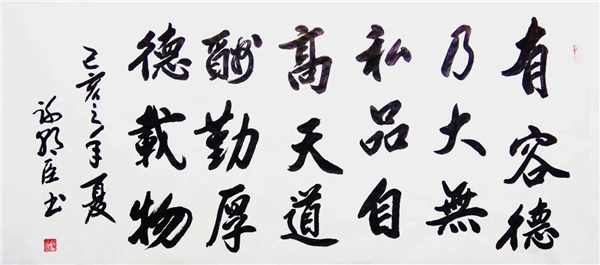 有容德
乃大無
私品自
高天道
酬勤厚
德載物
己亥之年夏
臣书